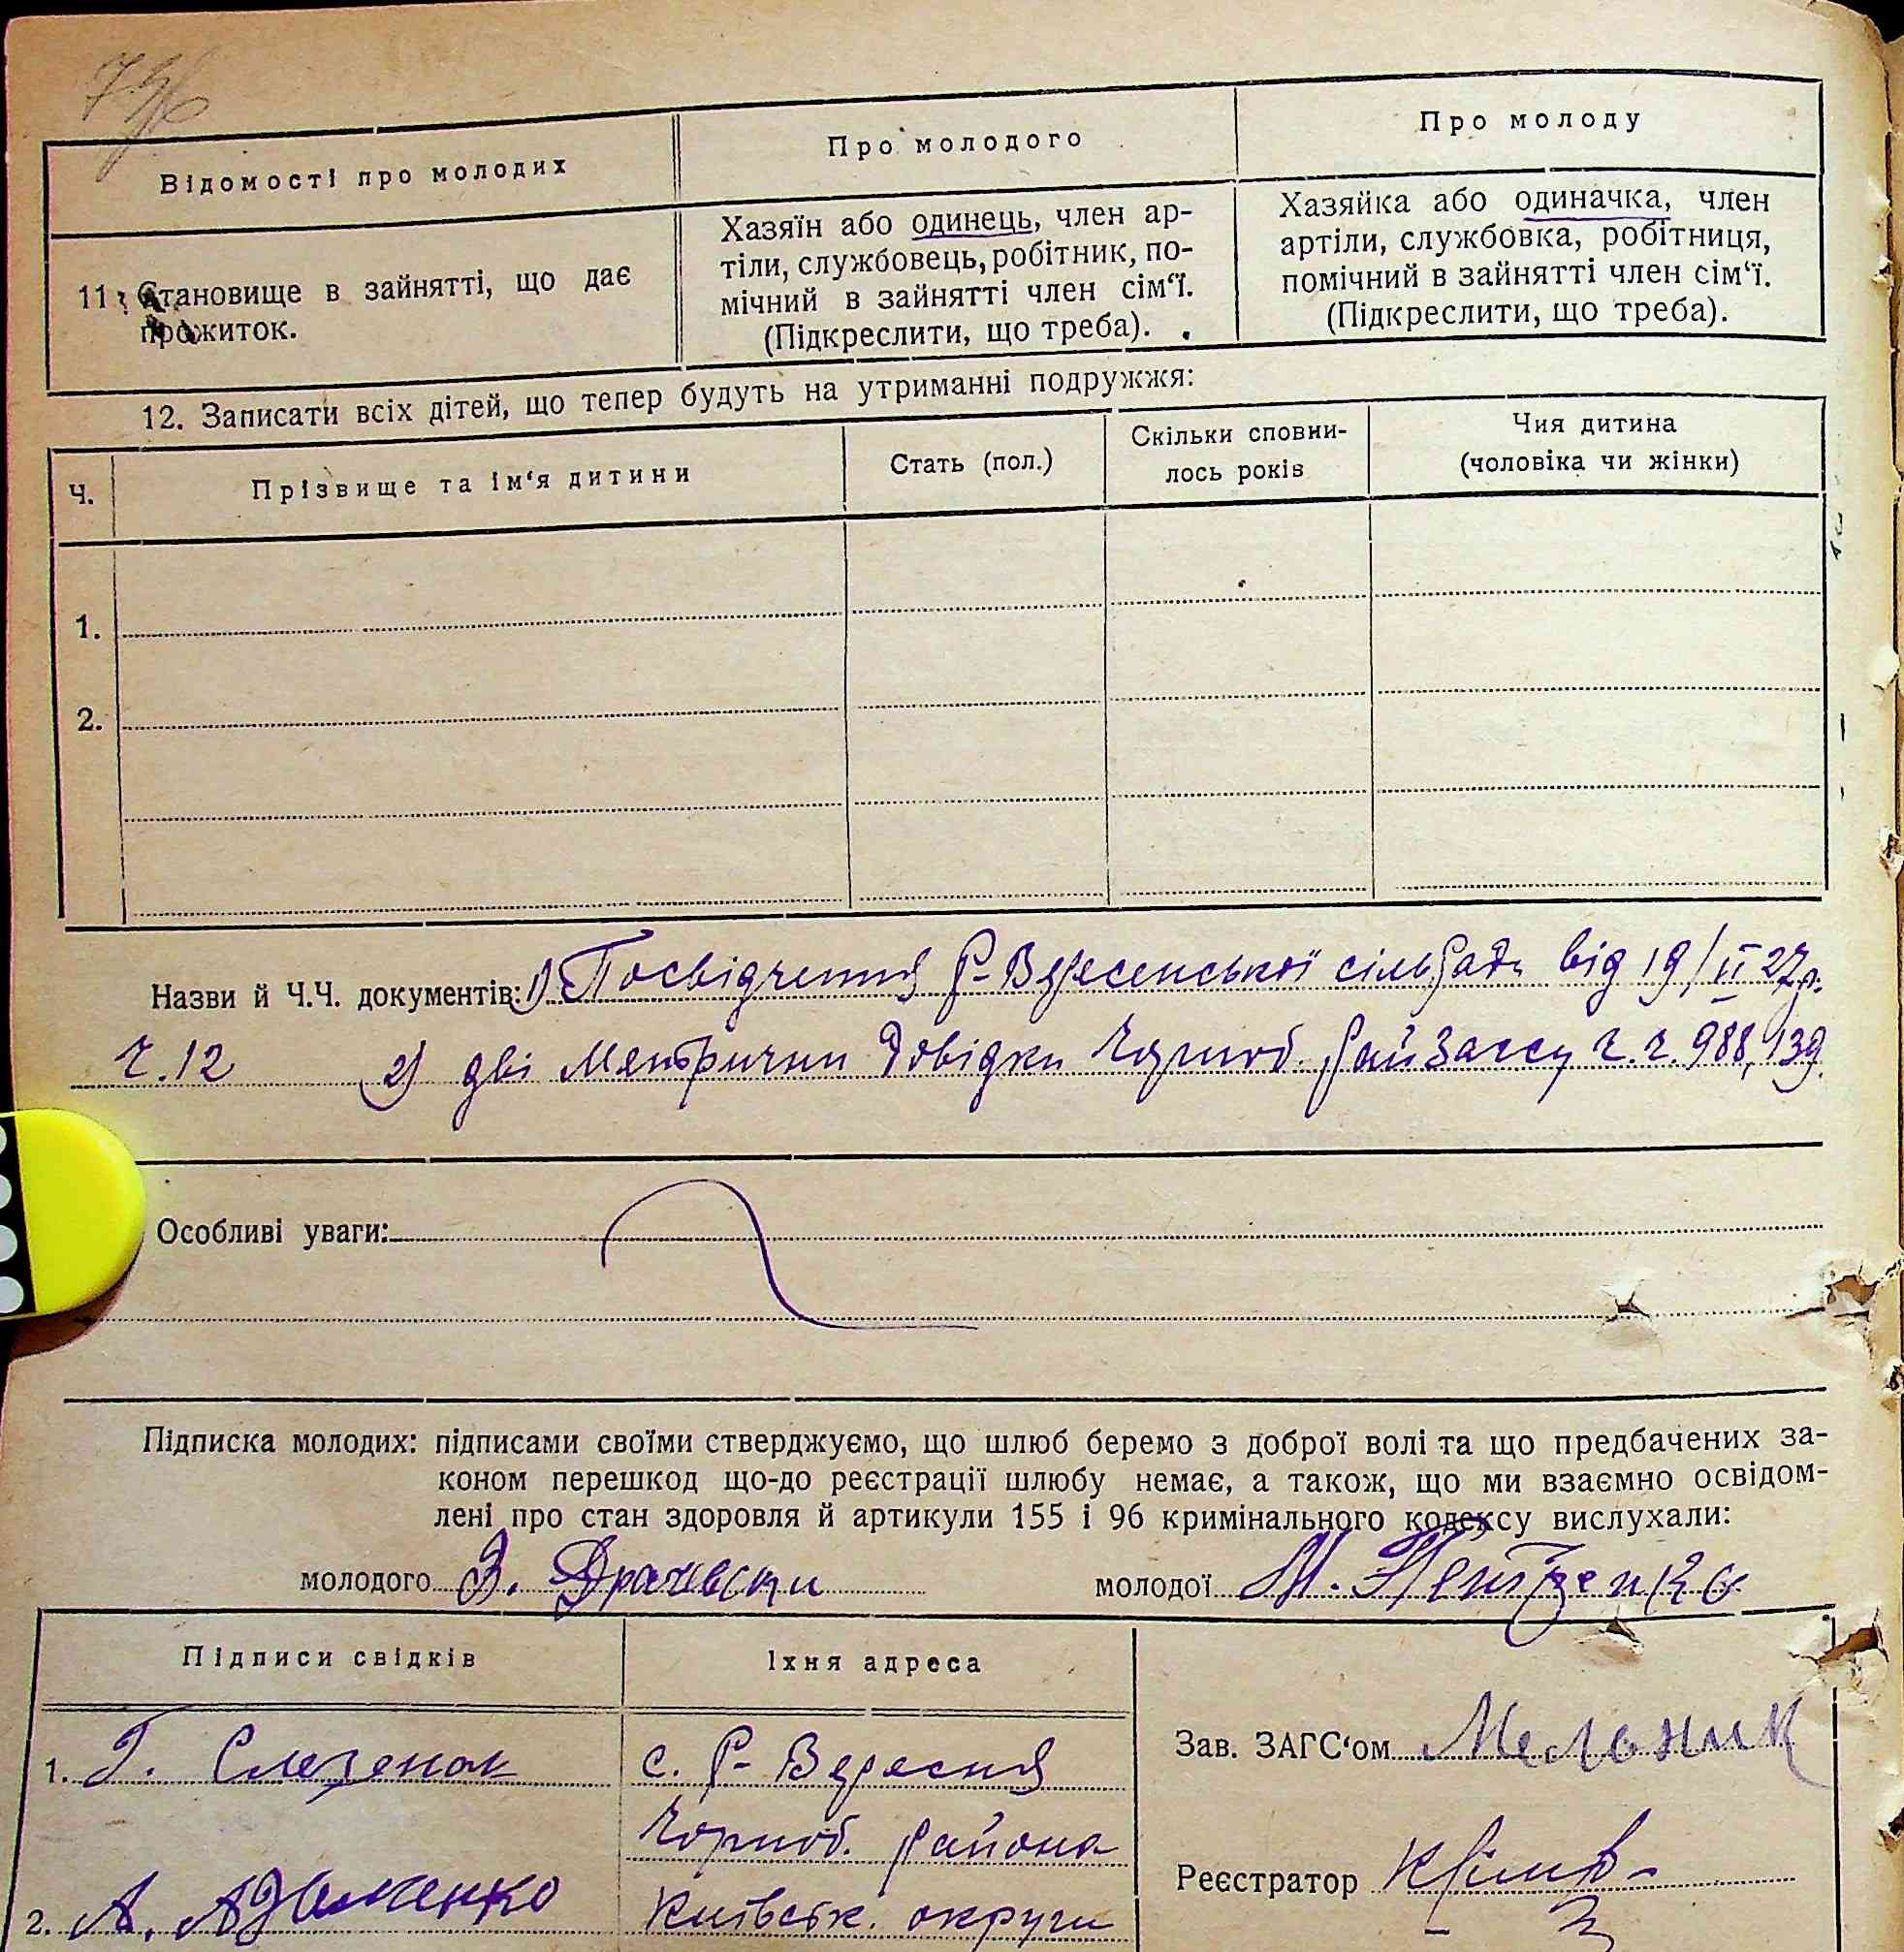 Відомості про молодих
Про молодого
Про молоду
11. Становище в зайнятті, що дає
прожиток.
Хазяїн або одинець, член ар-
тіли, службовець, робітник, по-
мічний в зайнятті член сім‘ї.
(Підкреслити, що треба).
Хазяйка або одиначка, член
артіли, службовка, робітниця,
помічний в зайнятті член сім‘ї.
(Підкреслити, що треба).
12. Записати всіх дітей, що тепер будуть на утриманні подружжя:
Ч.
Прізвище та ім‘я дитини
Стать (пол.)
Скільки сповни-
лось років
Чия дитина
(чоловіка чи жінки)
1.
2.
Назви й Ч.Ч. документів: 1) Посвідчення Р-Вересенської сільради від 19/II 27р.
ч. 12 2) дві Метрички Довідки Чорноб. райЗагсу ч.ч. 988, 139.
Особливі уваги:
Підписка молодих: підписами своїми стверджуємо, що шлюб беремо з доброї волі та що предбачених за-
коном перешкод що-до реєстрації шлюбу немає, а також, що ми взаємно освідом-
лені про стан здоровля й артикули 155 і 96 кримінального кодексу вислухали:
молодого З. Драчевски
молодої М.
Підписи свідків
Їхня адреса
1. Г.
с. Р- Вересня
Чорноб. района
2. А. Адаменко
Київськ. округи
Зав. ЗАГС‘ом Мельник
Реєстратор